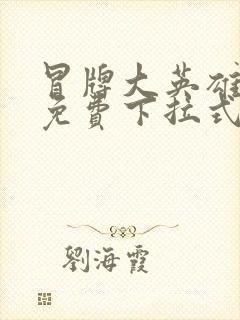 冒牌大英雄
免費下拉式
劉海霞